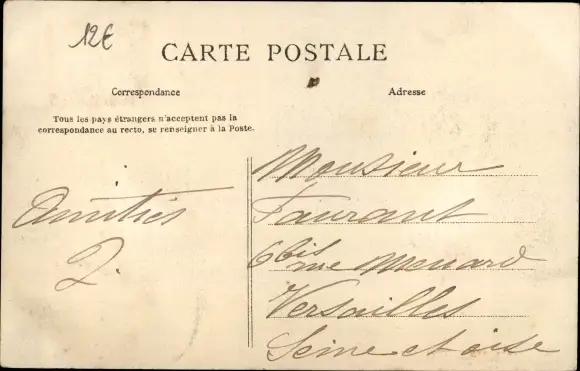 12€
CARTE POSTALE
Correspondance
Adresse
Tous les pays étrangers n'acceptent pas la
correspondance au recto, se renseigner à la Poste.
Amitiés
Monsieur
Faurant
6 bis rue Menard
Versailles
Seine et oise